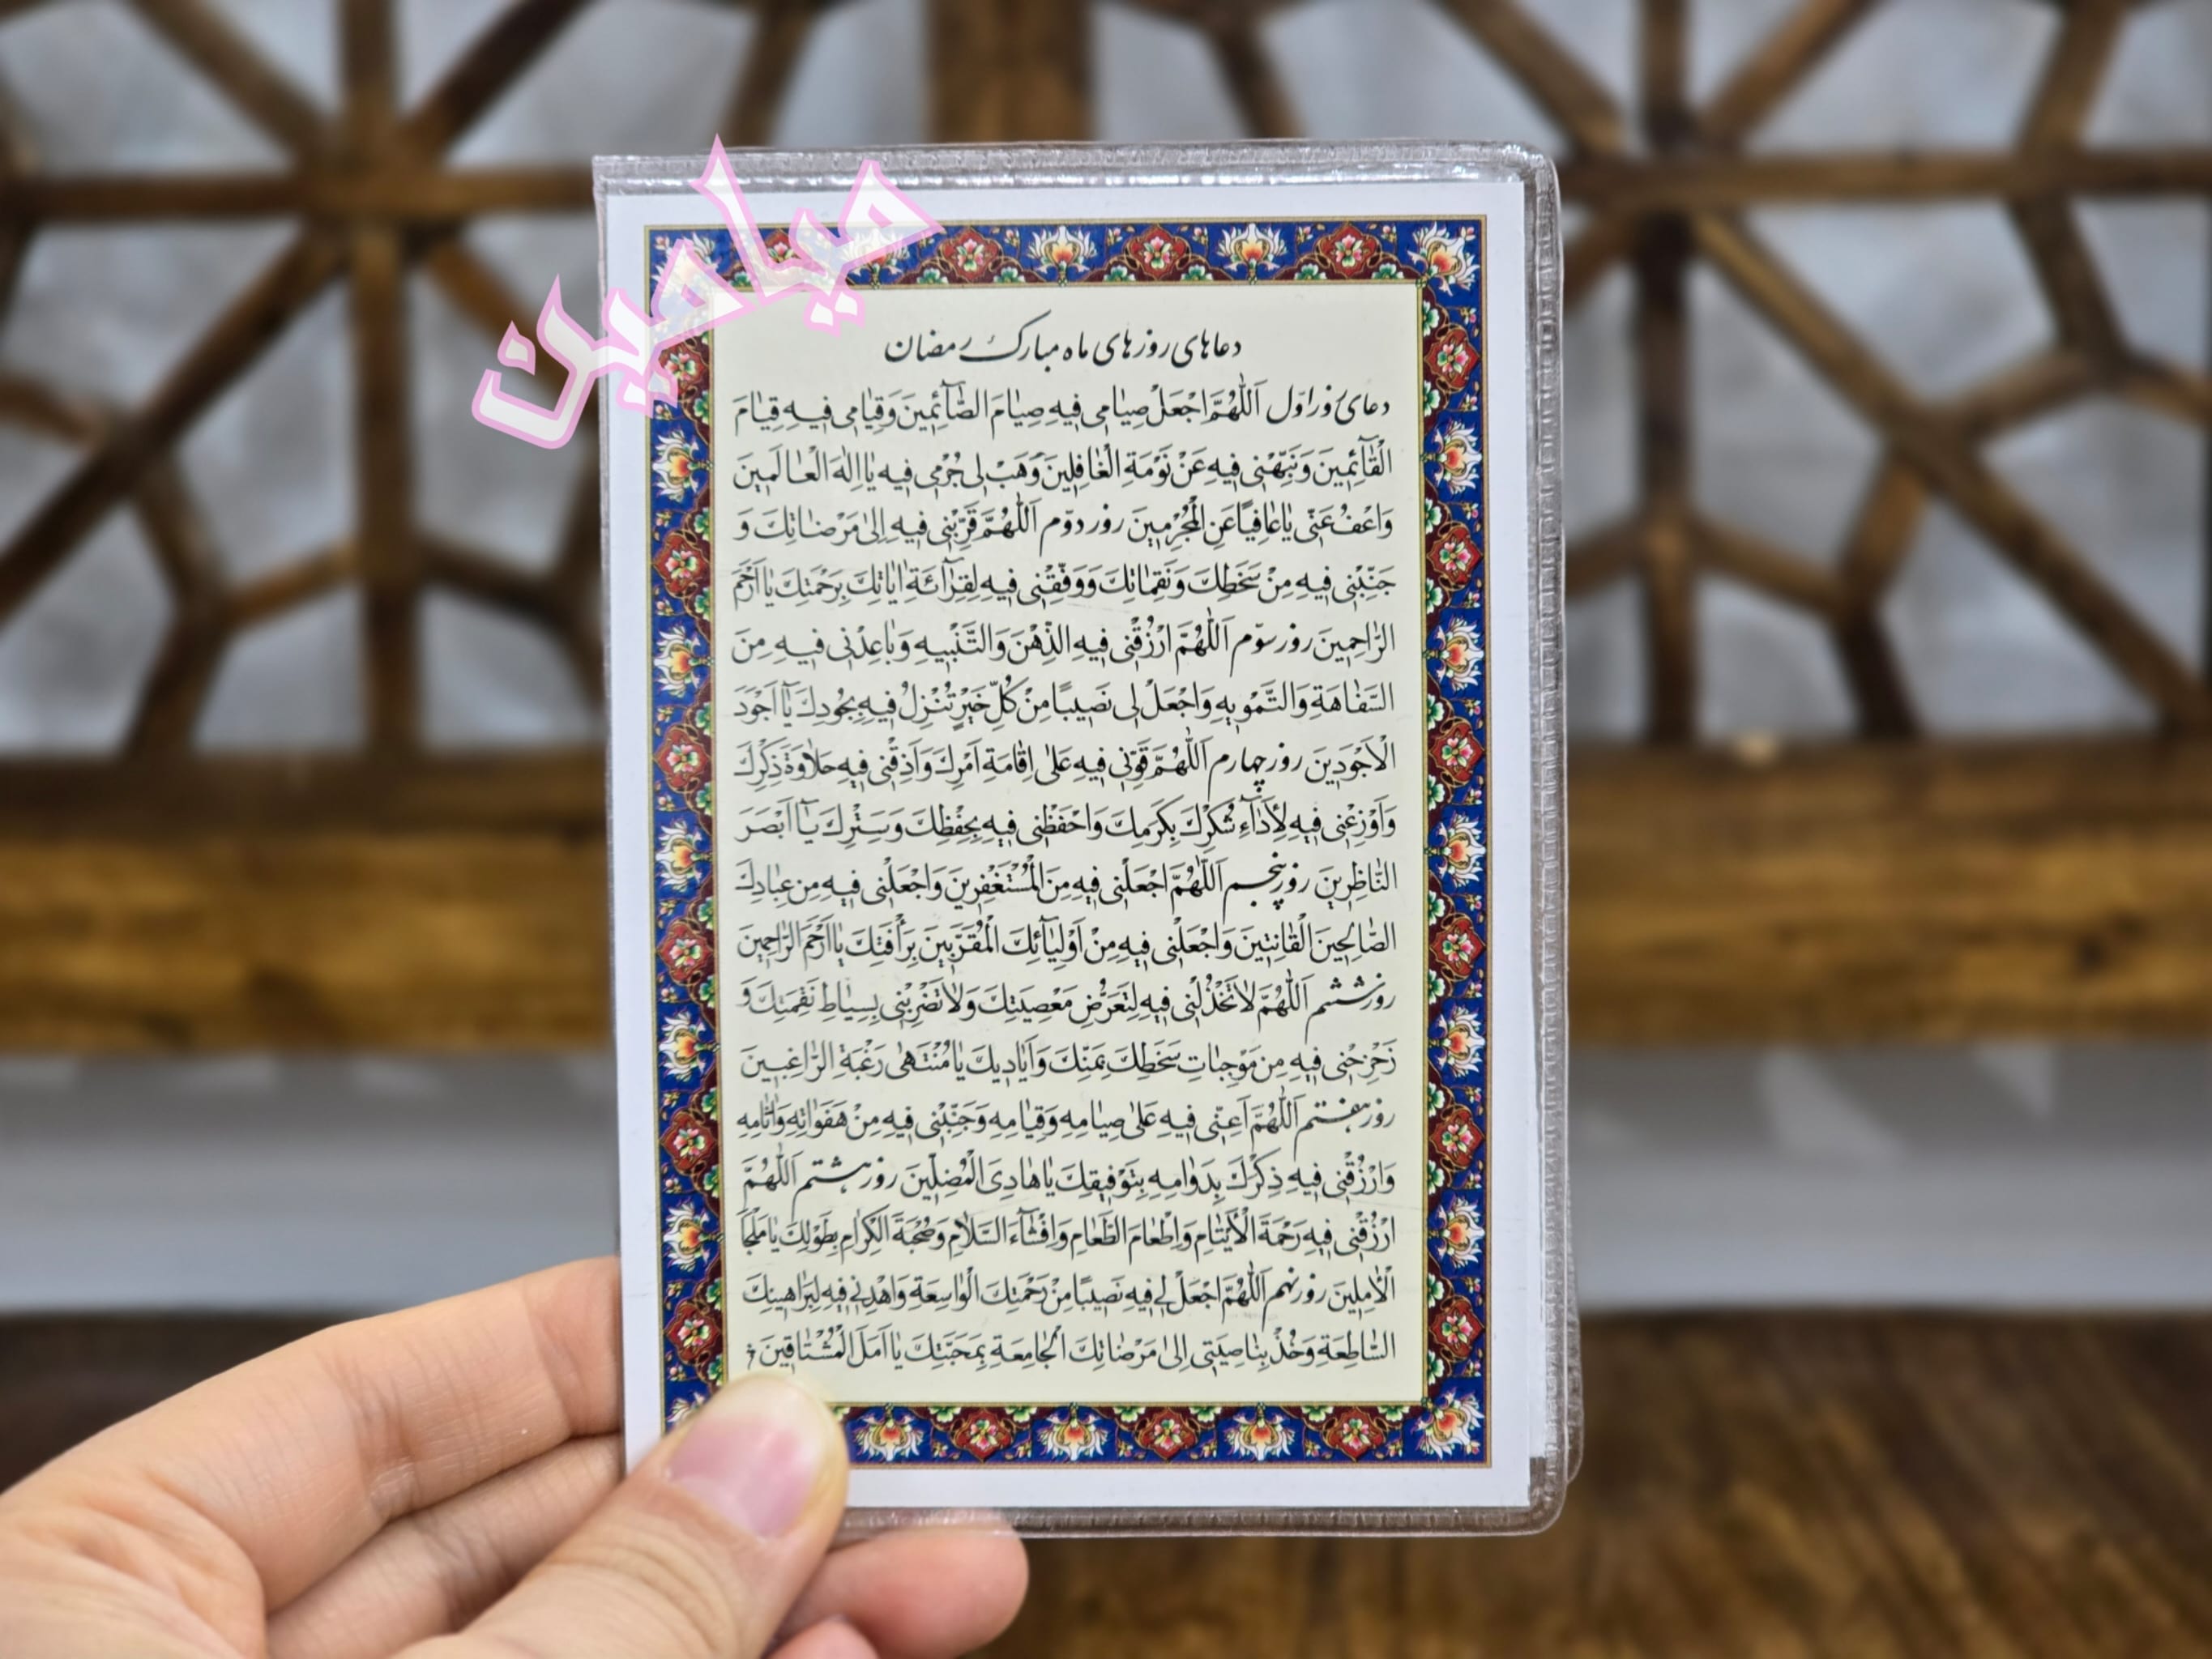 میاحین
دعاهای روزهای ماه مبارک رمضان
دعای روز اوّل اَللّٰهُمَّ اجْعَلْ صِیٰامی فیهِ صِیٰامَ الصّٰآئِمینَ وَقِیٰامی فیهِ قِیٰامَ
الْقٰآئِمینَ وَنَبِّهْنی فیهِ عَنْ نَوْمَةِ الْغٰافِلینَ وَهَبْ لی جُرْمی فیهِ یٰا اِلٰهَ الْعٰالَمینَ
وَاعْفُ عَنّی یٰا عٰافِیًا عَنِ الْمُجْرِمینَ روز دوّم اَللّٰهُمَّ قَرِّبْنی فیهِ اِلیٰ مَرْضٰاتِكَ وَ
جَنِّبْنی فیهِ مِنْ سَخَطِكَ وَنَقِمٰاتِكَ وَوَفِّقْنی فیهِ لِقِرٰآئَةِ اٰیٰاتِكَ بِرَحْمَتِكَ یٰا اَرْحَمَ
الرّٰاحِمینَ روز سوّم اَللّٰهُمَّ ارْزُقْنی فیهِ الذِّهْنَ وَالتَّنْبیهِ وَبٰاعِدْنی فیهِ مِنَ
السَّفٰاهَةِ وَالتَّمْویهِ وَاجْعَلْ لی نَصیبًا مِنْ كُلِّ خَیْرٍ تُنْزِلُ فیهِ بِجُودِكَ یٰآ اَجْوَدَ
الْاَجْوَدینَ روز چهارم اَللّٰهُمَّ قَوِّنی فیهِ عَلیٰ اِقٰامَةِ اَمْرِكَ وَاَذِقْنی فیهِ حَلاٰوَةَ ذِكْرِكَ
وَاَوْزِعْنی فیهِ لِاَدٰآءِ شُكْرِكَ بِكَرَمِكَ وَاحْفَظْنی فیهِ بِحِفْظِكَ وَسَتْرِكَ یٰآ اَبْصَرَ
النّٰاظِرینَ روز پنجم اَللّٰهُمَّ اجْعَلْنی فیهِ مِنَ الْمُسْتَغْفِرینَ وَاجْعَلْنی فیهِ مِن عِبٰادِكَ
الصّٰالِحینَ الْقٰانِتینَ وَاجْعَلْنی فیهِ مِنْ اَوْلِیٰآئِكَ الْمُقَرَّبینَ بِرَأْفَتِكَ یٰا اَرْحَمَ الرّٰاحِمینَ
روز ششم اَللّٰهُمَّ لاٰ تَخْذُلْنی فیهِ لِتَعَرُّضِ مَعْصِیَتِكَ وَلاٰ تَضْرِبْنی بِسِیٰاطِ نَقِمَتِكَ وَ
زَحْزِحْنی فیهِ مِن مَوْجِبٰاتِ سَخَطِكَ بِمَنِّكَ وَاَیٰادیكَ یٰا مُنْتَهیٰ رَغْبَةِ الرّٰاغِبینَ
روز هفتم اَللّٰهُمَّ اَعِنّی فیهِ عَلیٰ صِیٰامِهِ وَقِیٰامِهِ وَجَنِّبْنی فیهِ مِنْ هَفَوٰاتِهِ وَاٰثٰامِهِ
وَارْزُقْنی فیهِ ذِكْرَكَ بِدَوٰامِهِ بِتَوْفیقِكَ یٰا هٰادِیَ الْمُضِلّینَ روز هشتم اَللّٰهُمَّ
ارْزُقْنی فیهِ رَحْمَةَ الْاَیْتٰامِ وَاِطْعٰامَ الطَّعٰامِ وَاِفْشٰآءَ السَّلاٰمِ وَصُحْبَةَ الْكِرٰامِ بِطَوْلِكَ یٰا مَلْجَاَ
الْاٰمِلینَ روز نهم اَللّٰهُمَّ اجْعَلْ لی فیهِ نَصیبًا مِنْ رَحْمَتِكَ الْوٰاسِعَةِ وَاهْدِنی فیهِ لِبَرٰاهینِكَ
السّٰاطِعَةِ وَخُذْ بِنٰاصِیَتی اِلیٰ مَرْضٰاتِكَ الْجٰامِعَةِ بِمَحَبَّتِكَ یٰا اَمَلَ الْمُشْتٰاقینَ